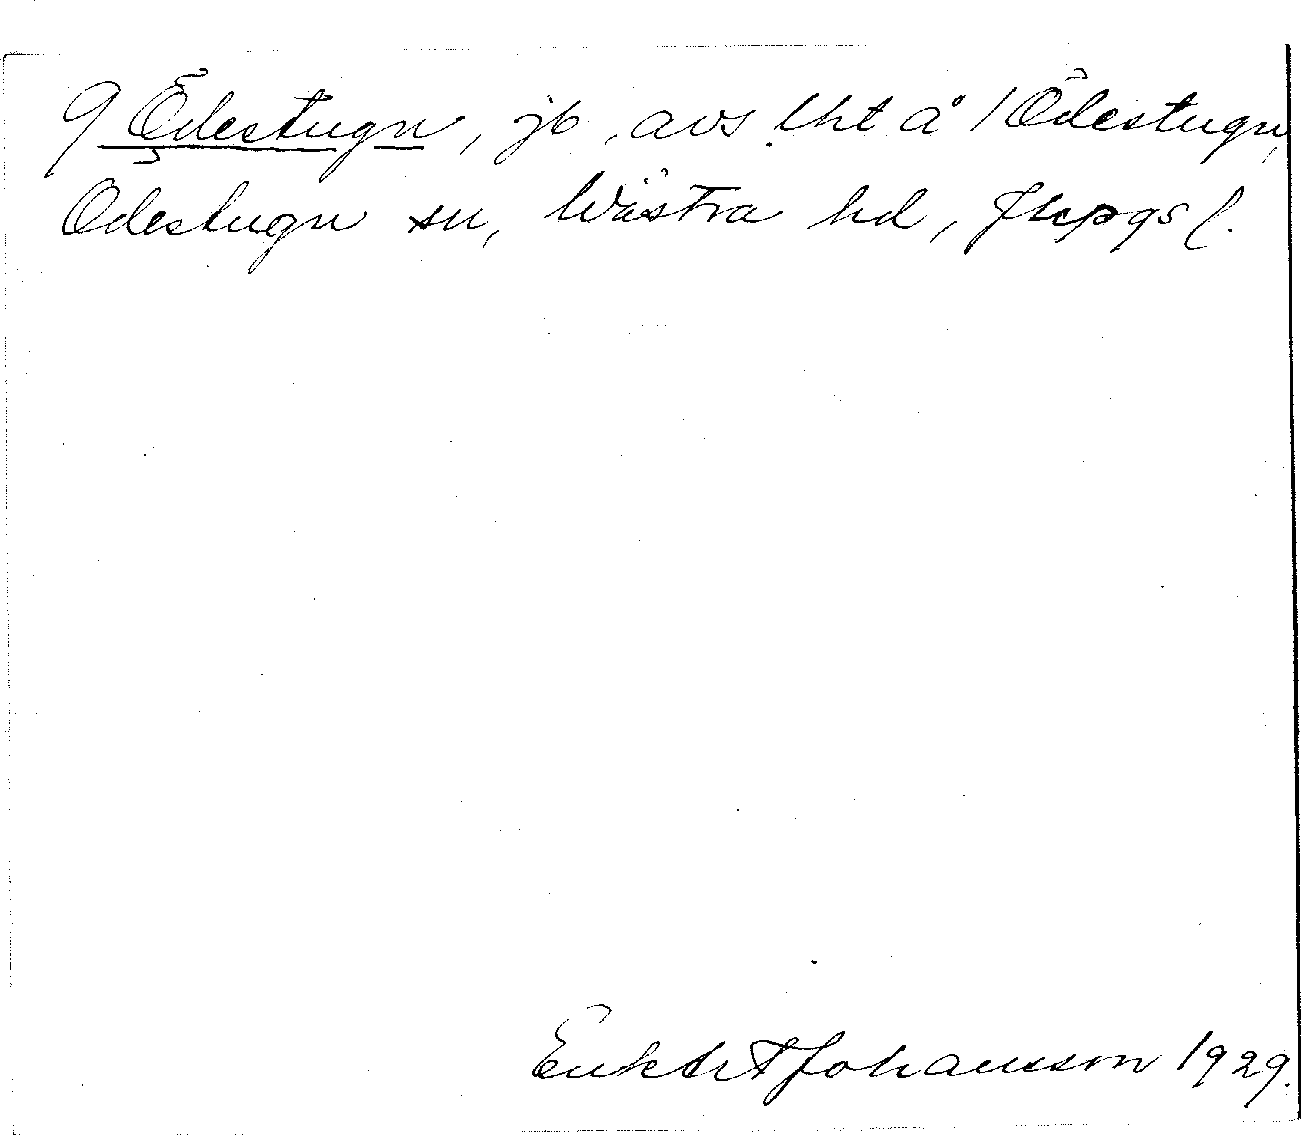 9 Ödestugn, jb, avs lht å 1 Ödestugn,
Ödestugn sn, Västra hd, Jkpgs l.
Johansson 1929.